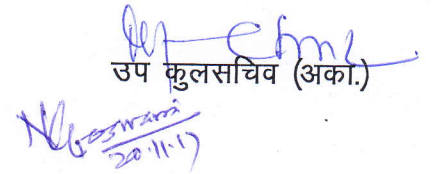 उप कुलसचिव (अका.)
NGoswami
20.11.17